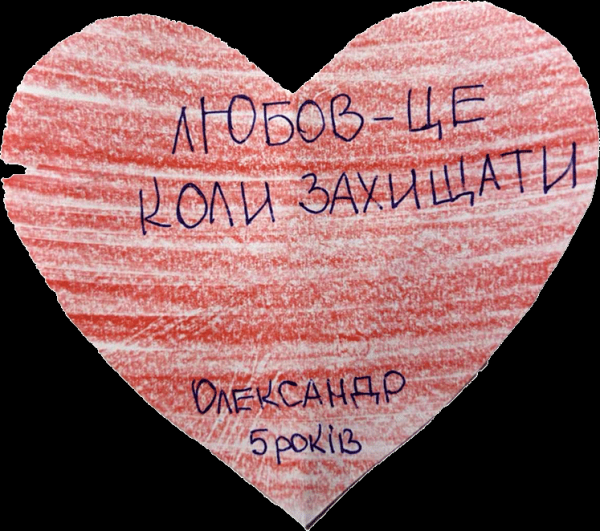 ЛЮБОВ – ЦЕ
КОЛИ ЗАХИЩАТИ
ОЛЕКСАНДР
5 РОКІВ